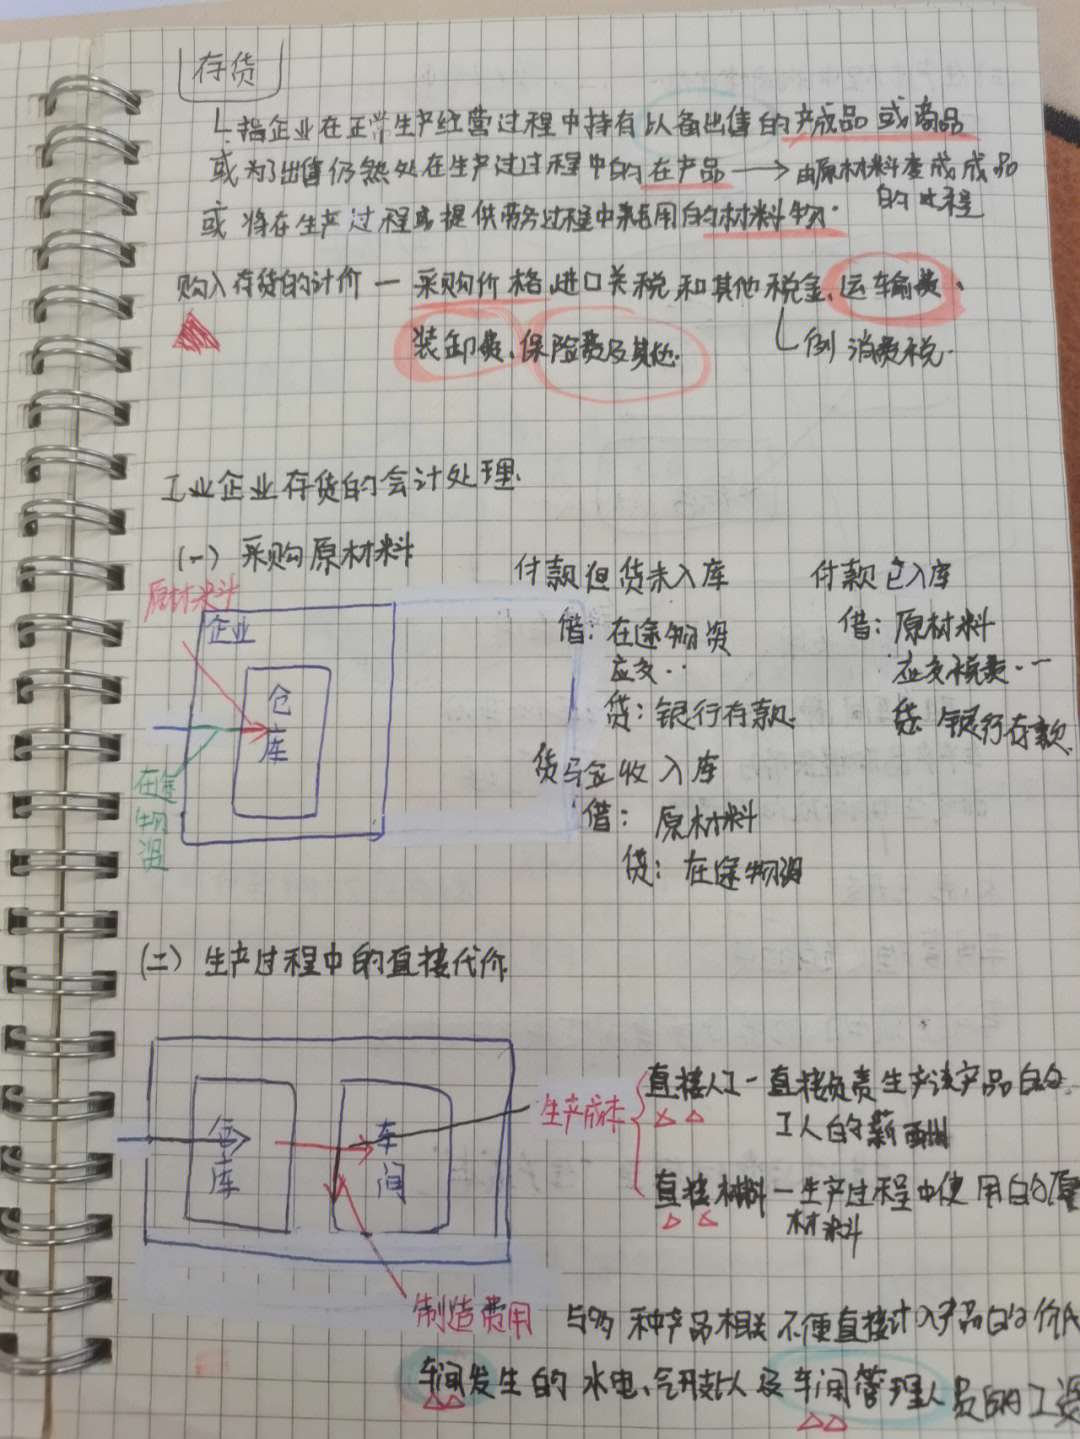 存货
指企业在正常生产经营过程中持有以备出售的产成品或商品
或为了出售仍然处在生产过过程中的在产品 → 由原材料变成成品
的过程
或将在生产过程或提供劳务过程中耗用的材料物.
购入存货的计价 — 采购价格、进口关税和其他税金、运输费、
装卸费、保险费及其他.
例 消费税.
工业企业存货的会计处理.
(一) 采购原材料
原材料
企业
仓库
在途物资
付款但货未入库
借: 在途物资
应交..
贷: 银行存款.
货与验收入库
借: 原材料
贷: 在途物资
付款已入库
借: 原材料
应交税费..一
贷: 银行存款.
(二) 生产过程中的直接代价
仓库
车间
生产成本
直接人工 - 直接负责生产该产品的
工人的薪酬
直接材料 - 生产过程中使用的原
材料
制造费用
与多种产品相关 不便直接计入产品的价
车间发生的水电、开支以及车间管理人员的工资